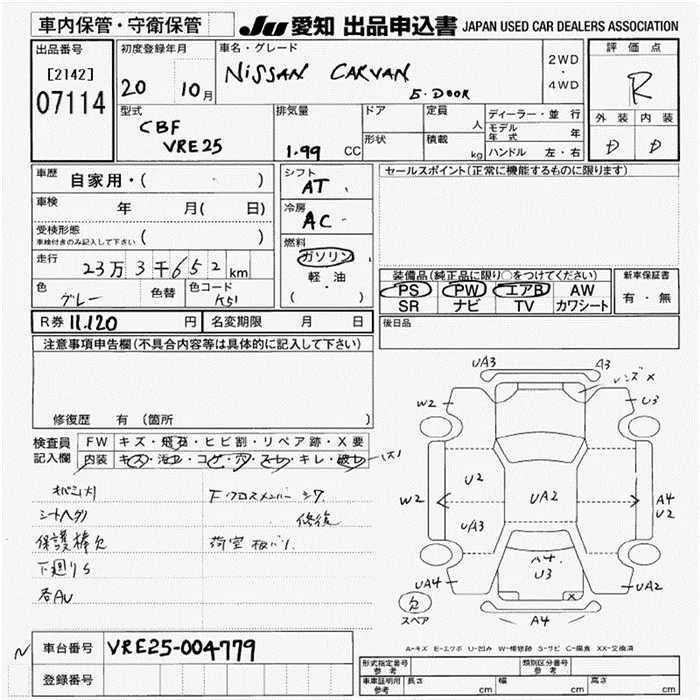 車内保管・守衛保管
JU 愛知 出品申込書 JAPAN USED CAR DEALERS ASSOCIATION
出品番号
[2142]
07114
初度登録年月
20 10月
車名・グレード
NISSAN CARVAN
5.DOOR
2WD
・
4WD
評価点
R
外装 内装
D D
型式
CBF
VRE25
排気量
1.99 CC
ドア
形状
定員
人
積載
kg
ディーラー・並行
モデル年式 年
ハンドル 左・右
車歴
自家用・( )
車検
年 月( 日)
受検形態
車検付きのみ記入して下さい ( )
走行
23万3千652km
色
グレー
色替
色コード
K51
シフト
AT
冷房
AC
燃料
ガソリン
軽・油
( )
セールスポイント(正常に機能するものに限ります)
装備品(純正品に限り○をつけてください)
PS PW エアB AW
SR ナビ TV カワシート
新車保証書
有・無
R券 11.120 円
名変期限 月 日
後日品
注意事項申告欄(不具合内容等は具体的に記入して下さい)
修復歴 有 (箇所 )
検査員記入欄
FW キズ・飛石・ヒビ割・リペア跡・X要
内装 キズ・汚レ・コゲ・穴・スレ・キレ・破レ
シートヘタリ
保護棒欠
下廻りS
各AU
Fクロスメンバー
修復
荷室 板バリ
UA3
A3
レンズX
W2
U3
U2
W2
UA2
A4
U2
UA3
A4
U3
UA4
UA2
A4
X
欠
スペア
A-キズ E-エクボ U-凹み W-補修跡 S-サビ C-腐食 XX-交換済
N
車台番号
VRE25-004779
登録番号
形式指定番号
参考
類別区分番号
参考
車庫証明用
参考
長さ cm
幅 cm
高さ cm